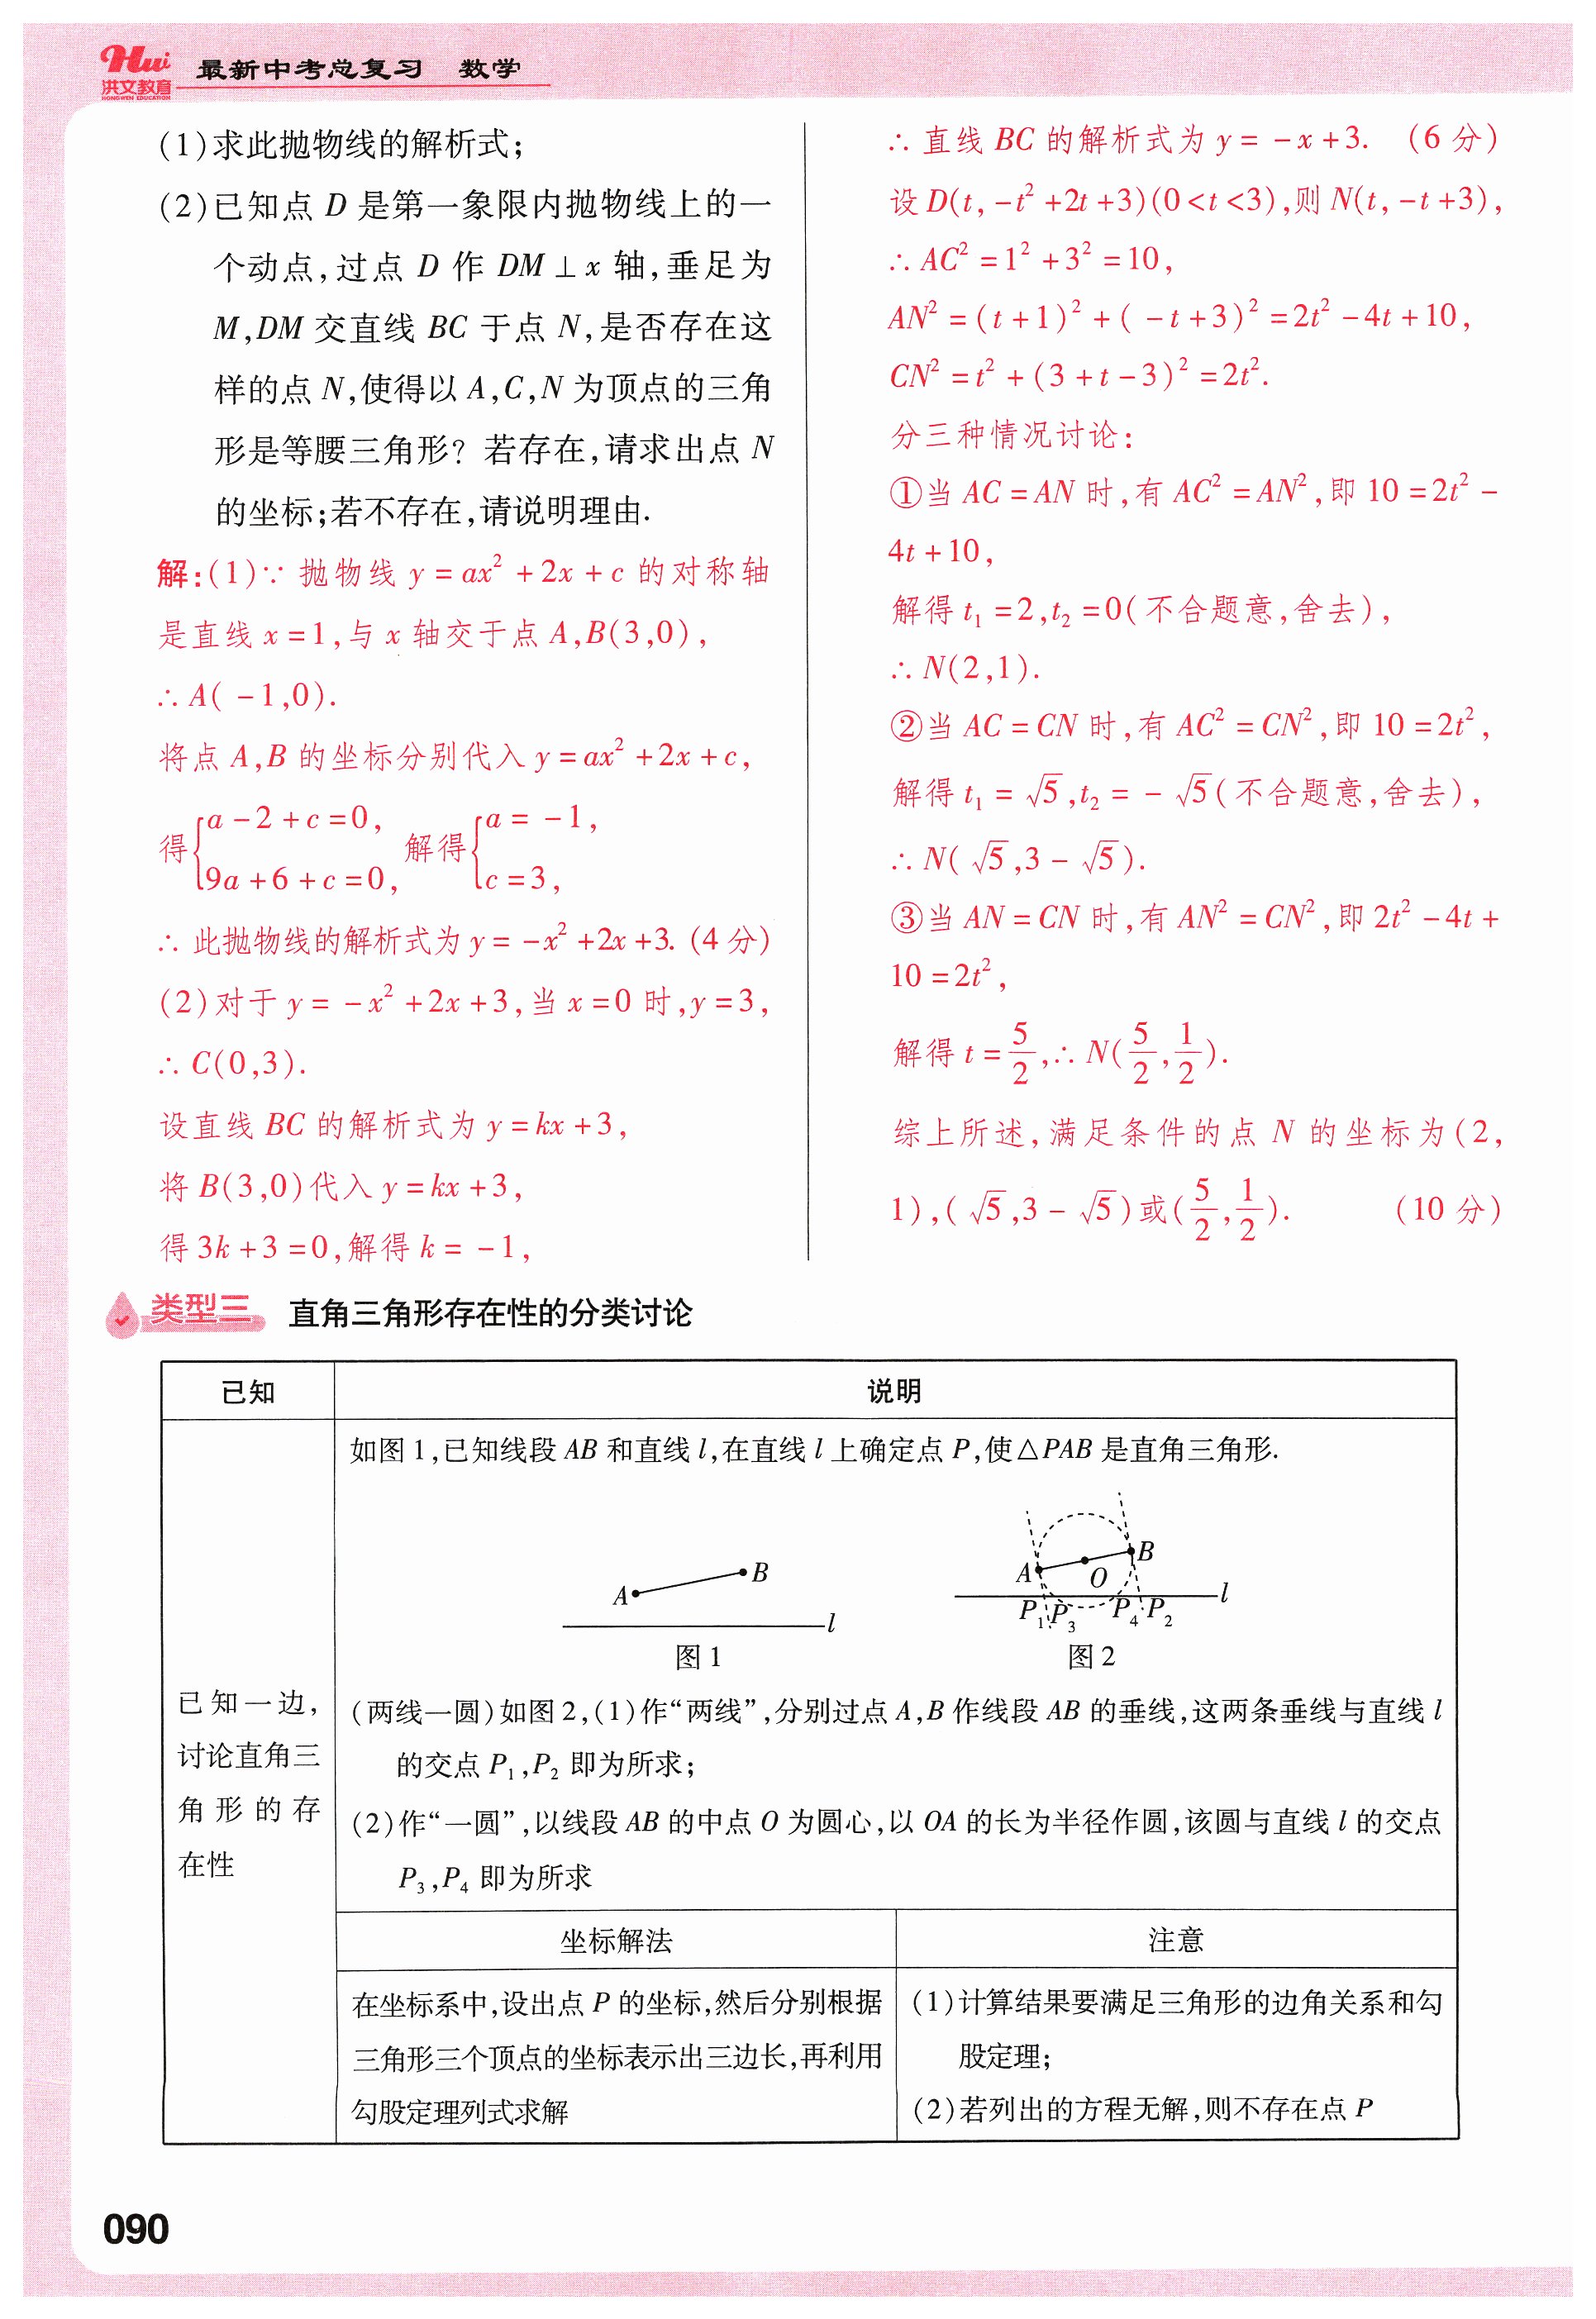 Hui
洪文教育
HONGWEN EDUCATION
最新中考总复习 数学
(1)求此抛物线的解析式;
(2)已知点 D 是第一象限内抛物线上的一
个动点,过点 D 作 DM⊥x 轴,垂足为
M,DM 交直线 BC 于点 N,是否存在这
样的点 N,使得以 A,C,N 为顶点的三角
形是等腰三角形? 若存在,请求出点 N
的坐标;若不存在,请说明理由.
解:(1)∵ 抛物线 y=ax²+2x+c 的对称轴
是直线 x=1,与 x 轴交于点 A,B(3,0),
∴ A(-1,0).
将点 A,B 的坐标分别代入 y=ax²+2x+c,
得{a-2+c=0, 9a+6+c=0, 解得{a=-1, c=3,
∴ 此抛物线的解析式为 y=-x²+2x+3. (4 分)
(2)对于 y=-x²+2x+3,当 x=0 时,y=3,
∴ C(0,3).
设直线 BC 的解析式为 y=kx+3,
将 B(3,0)代入 y=kx+3,
得 3k+3=0,解得 k=-1,
∴ 直线 BC 的解析式为 y=-x+3. (6 分)
设 D(t,-t²+2t+3)(0<t<3),则 N(t,-t+3),
∴ AC²=1²+3²=10,
AN²=(t+1)²+(-t+3)²=2t²-4t+10,
CN²=t²+(3+t-3)²=2t².
分三种情况讨论:
①当 AC=AN 时,有 AC²=AN²,即 10=2t²-
4t+10,
解得 t₁=2,t₂=0(不合题意,舍去),
∴ N(2,1).
②当 AC=CN 时,有 AC²=CN²,即 10=2t²,
解得 t₁=√5,t₂=-√5(不合题意,舍去),
∴ N(√5,3-√5).
③当 AN=CN 时,有 AN²=CN²,即 2t²-4t+
10=2t²,
解得 t=5/2,∴ N(5/2,1/2).
综上所述,满足条件的点 N 的坐标为(2,
1),(√5,3-√5)或(5/2,1/2). (10 分)
类型三 直角三角形存在性的分类讨论
已知 说明
已知一边,
讨论直角三
角形的存
在性
如图 1,已知线段 AB 和直线 l,在直线 l 上确定点 P,使△PAB 是直角三角形.
A B l
图 1
A B O l P₁ P₃ P₄ P₂
图 2
(两线一圆)如图 2,(1)作“两线”,分别过点 A,B 作线段 AB 的垂线,这两条垂线与直线 l
的交点 P₁,P₂ 即为所求;
(2)作“一圆”,以线段 AB 的中点 O 为圆心,以 OA 的长为半径作圆,该圆与直线 l 的交点
P₃,P₄ 即为所求
坐标解法 注意
在坐标系中,设出点 P 的坐标,然后分别根据
三角形三个顶点的坐标表示出三边长,再利用
勾股定理列式求解
(1)计算结果要满足三角形的边角关系和勾
股定理;
(2)若列出的方程无解,则不存在点 P
090